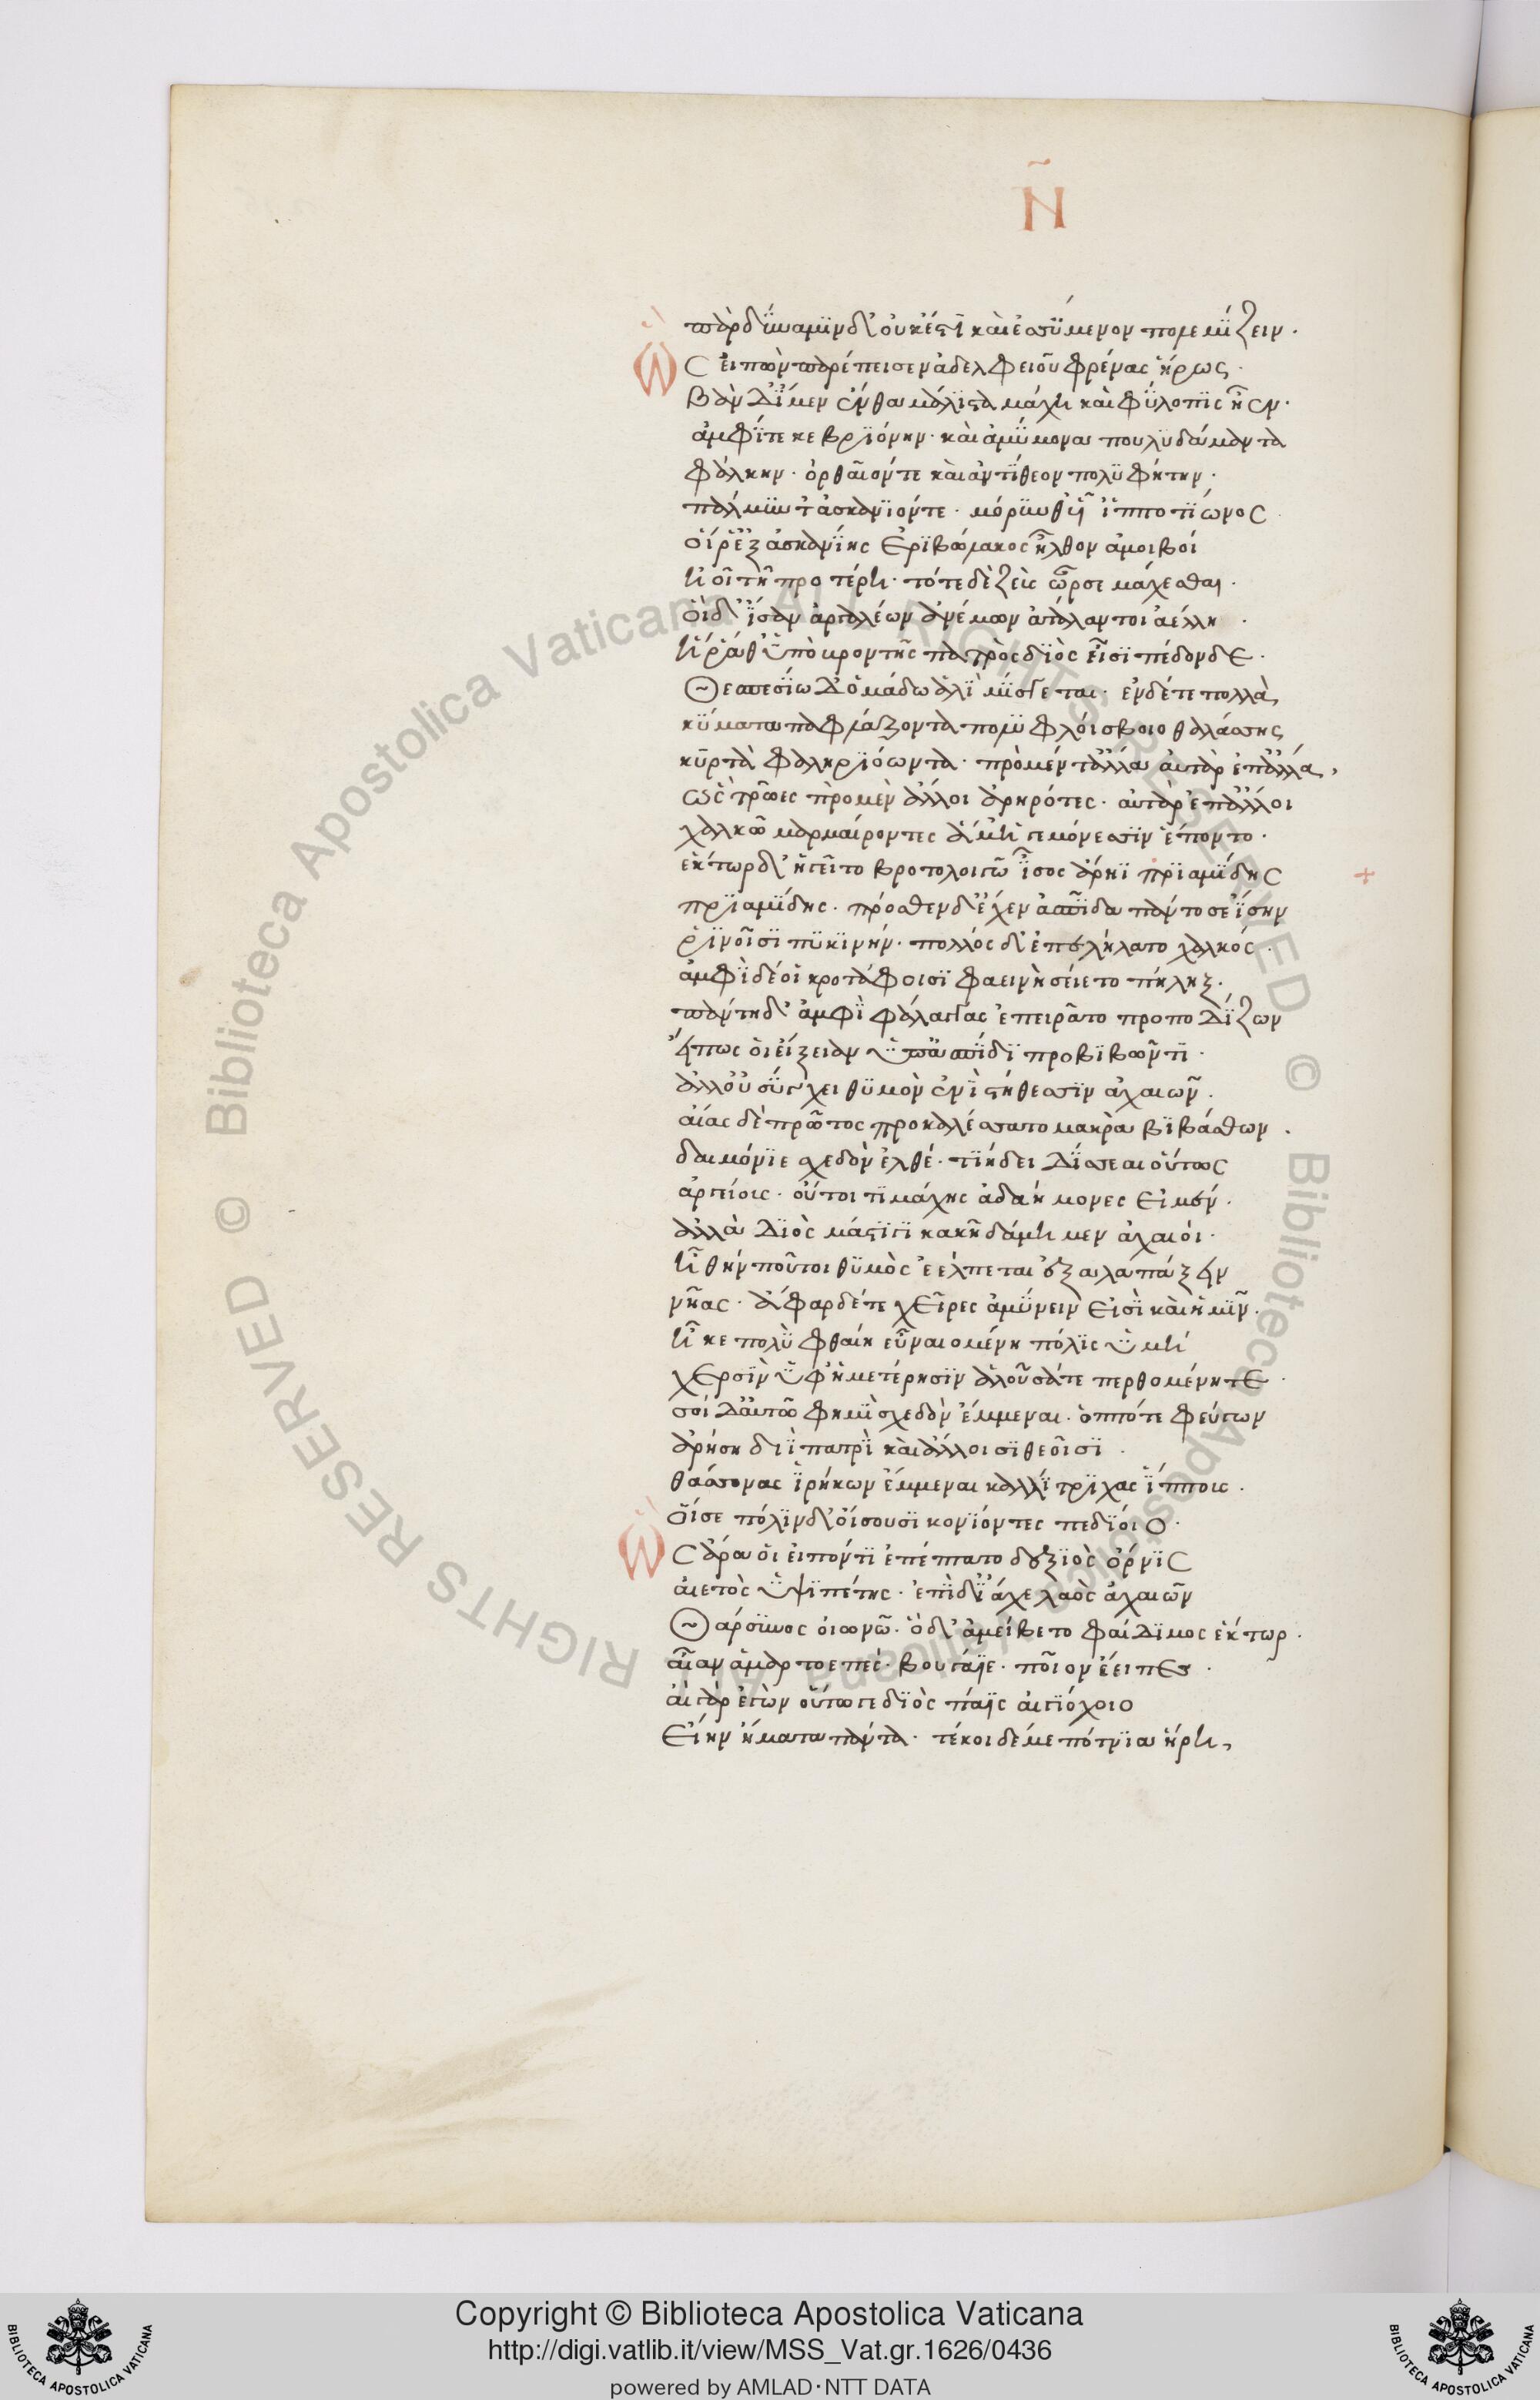 Ν̃
πὰρ δύναμιν δ' οὐκ ἔστι καὶ ἐσσύμενον πολεμίζειν.
Ὣς εἰπὼν παρέπεισεν ἀδελφειοῦ φρένας ἥρως.
βὰν δ' ἴμεν ἔνθα μάλιστα μάχη καὶ φύλοπις ἦεν.
ἀμφί τε κεβριόνην. καὶ ἀμύμονα πουλυδάμαντα
φάλκην. ὀρθαῖόν τε καὶ ἀντίθεον πολυφήτην.
πάλμυν τ' ἀσκανίον τε. μόρυν θ' υἷ' ἱπποτίωνος
οἵ ῥ' ἐξ ἀσκανίης ἐριβώλακος ἦλθον ἀμοιβοί
ἠοῖ τῇ προτέρη. τότε δὲ ζεὺς ὦρσε μάχεσθαι.
οἱ δ' ἴσαν ἀργαλέων ἀνέμων ἀτάλαντοι ἀέλλη.
ἥ ῥά θ' ὑπὸ βροντῆς πατρὸς διὸς εἶσι πέδονδε.
Θεσπεσίω δ' ὁμάδω ἁλὶ μίσγεται. ἐν δέ τε πολλὰ
κύματα παφλάζοντα πολυφλοίσβοιο θαλάσσης
κυρτὰ φαληριόωντα. πρὸ μέν τ' ἄλλα αὐτὰρ ἐπ' ἄλλα,
ὣς τρῶες πρὸ μὲν ἄλλοι ἀρηρότες. αὐτὰρ ἐπ' ἄλλοι
χαλκῶ μαρμαίροντες ἅμ' ἡγεμόνεσσιν ἕποντο.
ἕκτωρ δ' ἡγεῖτο βροτολοιγῶ ἶσος ἄρηϊ πριαμίδης
πριαμίδης. πρόσθεν δ' ἔχεν ἀσπίδα πάντοσ' ἐΐσην
ῥινοῖσι πυκινήν. πολλὸς δ' ἐπελήλατο χαλκός.
ἀμφὶ δέ οἱ κροτάφοισι φαεινὴ σείετο πήληξ.
πάντη δ' ἀμφὶ φάλαγγας ἐπειρᾶτο προποδίζων
εἴ πως οἱ εἴξειαν ὑπασπίδι προβιβῶντι.
ἀλλ' οὐ σύγχει θυμὸν ἐνὶ στήθεσσιν ἀχαιῶν.
αἴας δὲ πρῶτος προκαλέσσατο μακρὰ βιβάσθων.
δαιμόνιε σχεδὸν ἐλθέ. τίη δειδίσσεαι οὕτως
ἀργείους. οὔτοι τι μάχης ἀδαήμονες εἰμέν.
ἀλλὰ διὸς μάστιγι κακῇ δάμημεν ἀχαιοί.
ἦ θήν που τοι θυμὸς ἐέλπεται ἐξαλαπάξειν
νῆας. ἄφαρ δέ τε χεῖρες ἀμύνειν εἰσὶ καὶ ἡμῖν.
ἦ κε πολὺ φθαίη εὖ ναιομένη πόλις ὑμή
χερσὶν ὑφ' ἡμετέρησιν ἁλοῦσά τε περθομένη τε.
σοὶ δ' αὐτῶ φημὶ σχεδὸν ἔμμεναι. ὁππότε φεύγων
ἀρήση διῒ πατρὶ καὶ ἄλλοισι θεοῖσι.
θάσσονας ἰρήκων ἔμμεναι καλλίτριχας ἵππους.
οἵ σε πόλιν δ' οἴσουσι κονίοντες πεδίοιο.
Ὣς ἄρα οἱ εἰπόντι ἐπέπτατο δεξιὸς ὄρνις
αἰετὸς ὑψιπέτης. ἐπὶ δ' ἴαχε λαὸς ἀχαιῶν
Θάρσυνος οἰωνῶ. ὁ δ' ἀμείβετο φαίδιμος ἕκτωρ.
αἶαν ἁμαρτοεπές. βουγάϊε. ποῖον ἔειπες.
αἲ γὰρ ἐγὼν οὕτω γε διὸς πάϊς αἰγιόχοιο
εἴην ἤματα πάντα. τέκοι δέ με πότνια ἥρη,
+
Copyright © Biblioteca Apostolica Vaticana
http://digi.vatlib.it/view/MSS_Vat.gr.1626/0436
powered by AMLAD·NTT DATA
BIBLIOTECA APOSTOLICA VATICANA
BIBLIOTECA APOSTOLICA VATICANA
© Biblioteca Apostolica Vaticana ALL RIGHTS RESERVED
© Biblioteca Apostolica Vaticana ALL RIGHTS RESERVED